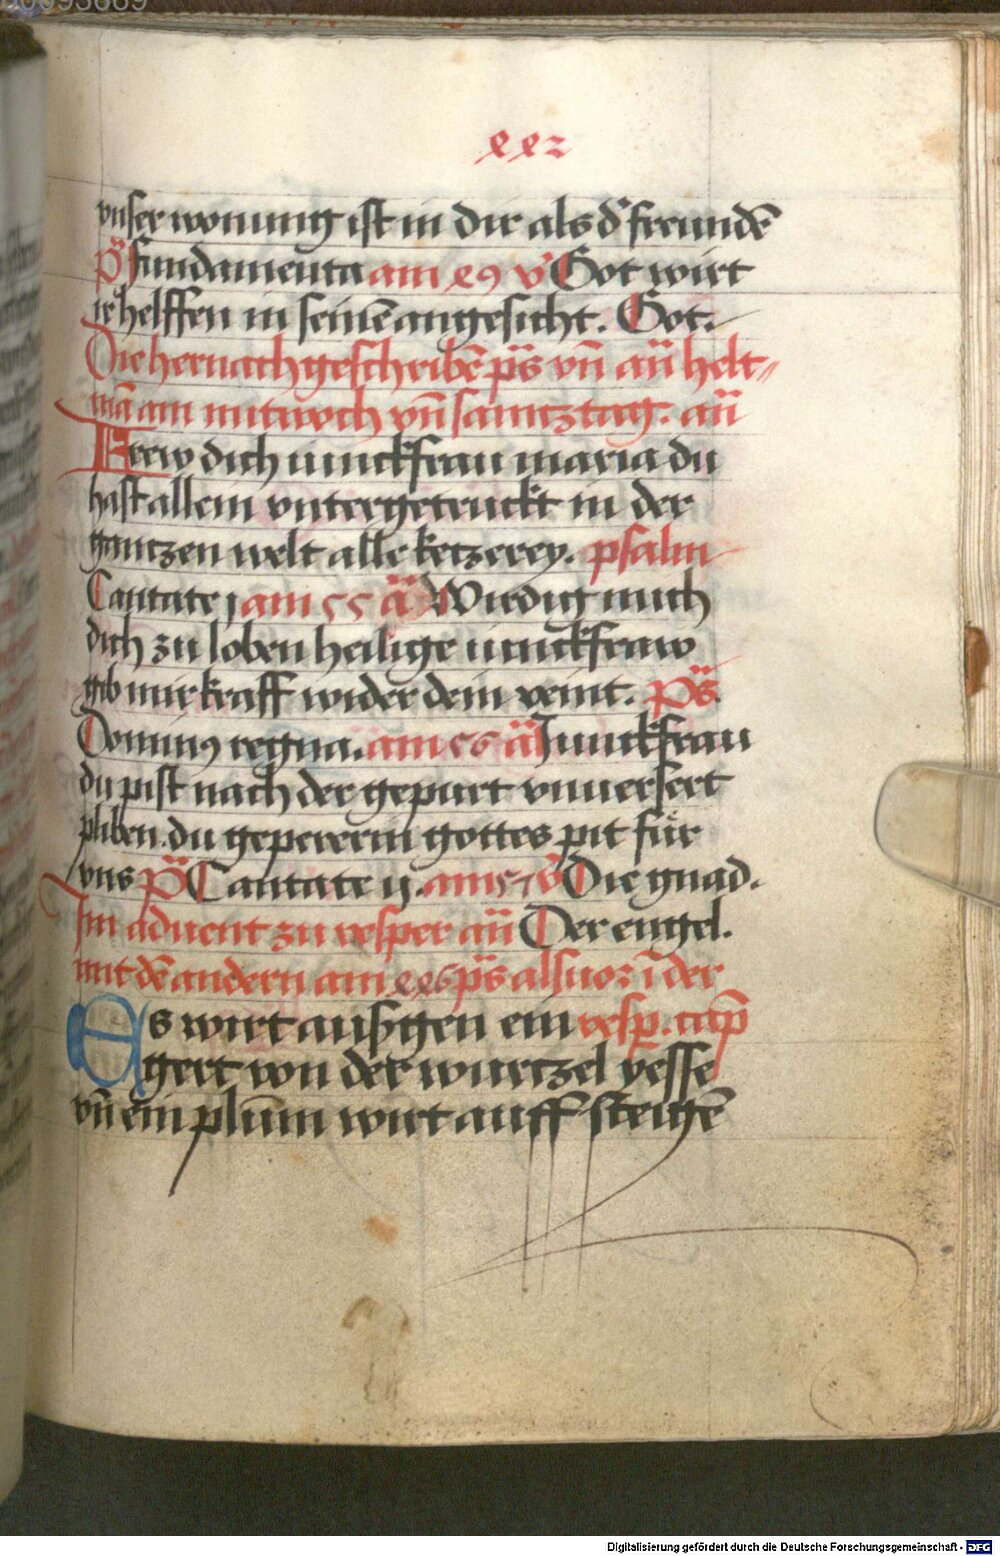 00093669
442
vnser wonung ist in dir als d̕ freundē
p̃s fundamenta am 49 v̕ Got wirt
ir helffen in seinē angesicht. Got.
Die hernach geschribē p̃s vn̄ añ helt
mā am mitwoch vn̄ samtztag. añ
Frew dich iunckfrau maria du
hast allein vntergetruckt in der
gantzen welt alle ketzerey. psalm
Cantate j am 55 ā Wirdig mich
dich zu loben heilige iunckfraw
gib mir kraff wider dein veint. p̃s
Dominꝯ regna. am 56 ā Junckfrau
du pist nach der gepurt vnuersert
pliben. du gepererin gottes pit für
vns p̃s Cantate ij. am 57 v̕ Die gnad.
Im aduent zu vesper añ Der engel.
mit dē andern am 446 p̃s als uor ī der
Es wirt außgen ein vesp. cap̄
gert von der wurtzel yesse
vn̄ ein plūm wirt auff steigē
Digitalisierung gefördert durch die Deutsche Forschungsgemeinschaft - DFG